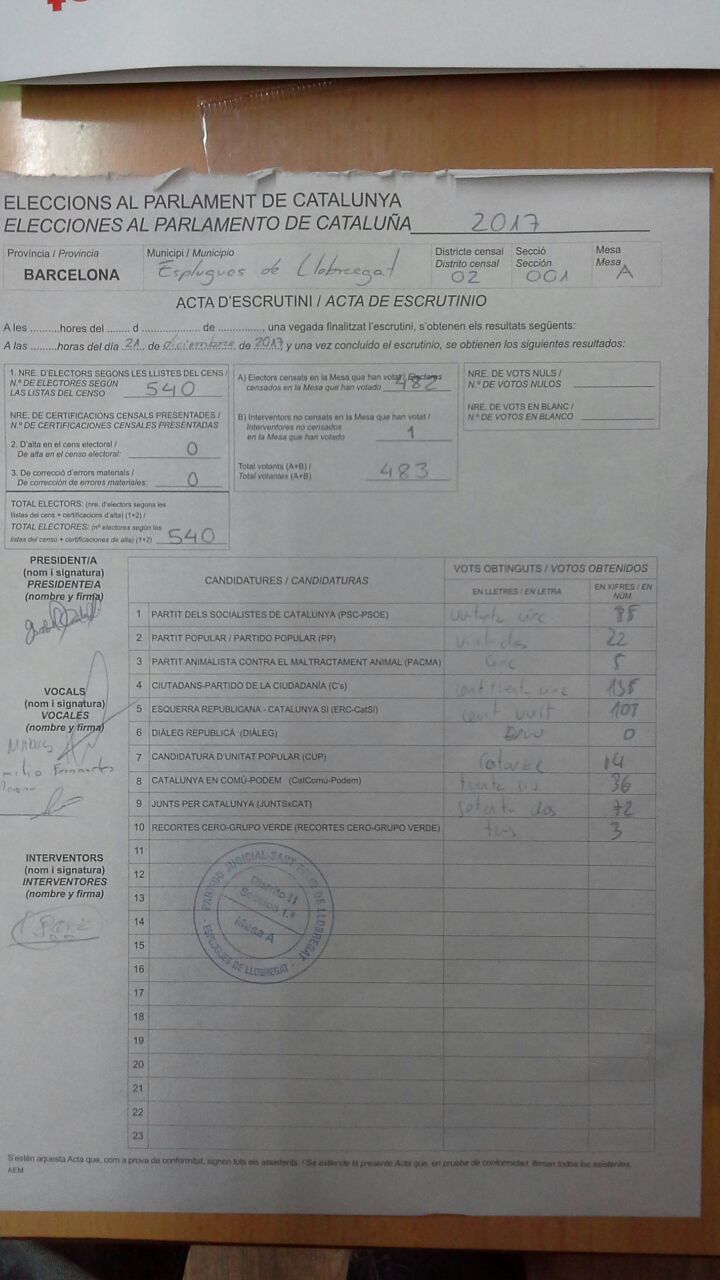 ELECCIONS AL PARLAMENT DE CATALUNYA
ELECCIONES AL PARLAMENTO DE CATALUÑA 2017
Provincia / Provincia
BARCELONA
Municipi / Municipio
Esplugues de Llobregat
Districte censal
Distrito censal
02
Secció
Sección
001
Mesa
Mesa
A
ACTA D'ESCRUTINI / ACTA DE ESCRUTINIO
A les ..........hores del ........ d .................... de ................, una vegada finalitzat l'escrutini, s'obtenen els resultats següents:
A las .........horas del día 21 de diciembre de 2017 y una vez concluido el escrutinio, se obtienen los siguientes resultados:
1. NRE. D'ELECTORS SEGONS LES LLISTES DEL CENS /
N.º DE ELECTORES SEGÚN
LAS LISTAS DEL CENSO 540
NRE. DE CERTIFICACIONS CENSALS PRESENTADES /
N.º DE CERTIFICACIONES CENSALES PRESENTADAS
2. D'alta en el cens electoral /
De alta en el censo electoral: 0
3. De correcció d'errors materials /
De corrección de errores materiales: 0
TOTAL ELECTORS: (nre. d'electors segons les
llistes del cens + certificacions d'alta) (1+2) /
TOTAL ELECTORES: (nº electores según las
listas del censo + certificaciones de alta) (1+2) 540
A) Electors censats en la Mesa que han votat / Electores
censados en la Mesa que han votado 482
B) Interventors no censats en la Mesa que han votat /
Interventores no censados
en la Mesa que han votado 1
Total votants (A+B) /
Total votantes (A+B) 483
NRE. DE VOTS NULS /
N.º DE VOTOS NULOS
NRE. DE VOTS EN BLANC /
N.º DE VOTOS EN BLANCO
PRESIDENT/A
(nom i signatura)
PRESIDENTE/A
(nombre y firma)
VOCALS
(nom i signatura)
VOCALES
(nombre y firma)
INTERVENTORS
(nom i signatura)
INTERVENTORES
(nombre y firma)
CANDIDATURES / CANDIDATURAS
VOTS OBTINGUTS / VOTOS OBTENIDOS
EN LLETRES / EN LETRA
EN XIFRES / EN NÚM.
1 PARTIT DELS SOCIALISTES DE CATALUNYA (PSC-PSOE) 85
2 PARTIT POPULAR / PARTIDO POPULAR (PP) 22
3 PARTIT ANIMALISTA CONTRA EL MALTRACTAMENT ANIMAL (PACMA) Cinc 5
4 CIUTADANS-PARTIDO DE LA CIUDADANÍA (C's) cent trenta cinc 135
5 ESQUERRA REPUBLICANA - CATALUNYA SI (ERC-CatSí) cent vuit 108
6 DIÀLEG REPUBLICÀ (DIÀLEG) 0
7 CANDIDATURA D'UNITAT POPULAR (CUP) Catorze 14
8 CATALUNYA EN COMÚ-PODEM (CatComú-Podem) trenta sis 36
9 JUNTS PER CATALUNYA (JUNTSxCAT) setenta dos 72
10 RECORTES CERO-GRUPO VERDE (RECORTES CERO-GRUPO VERDE) tres 3
11
12
13
14
15
16
17
18
19
20
21
22
23
PARTIDO JUDICIAL-SANT FELIU DE LLOBREGAT
Distrito II
Sección 1.ª
Mesa A
ESPLUGUES DE LLOBREGAT
S'estén aquesta Acta que, com a prova de conformitat, signen tots els assistents. / Se extiende la presente Acta que, en prueba de conformidad, firman todos los asistentes.
AEM